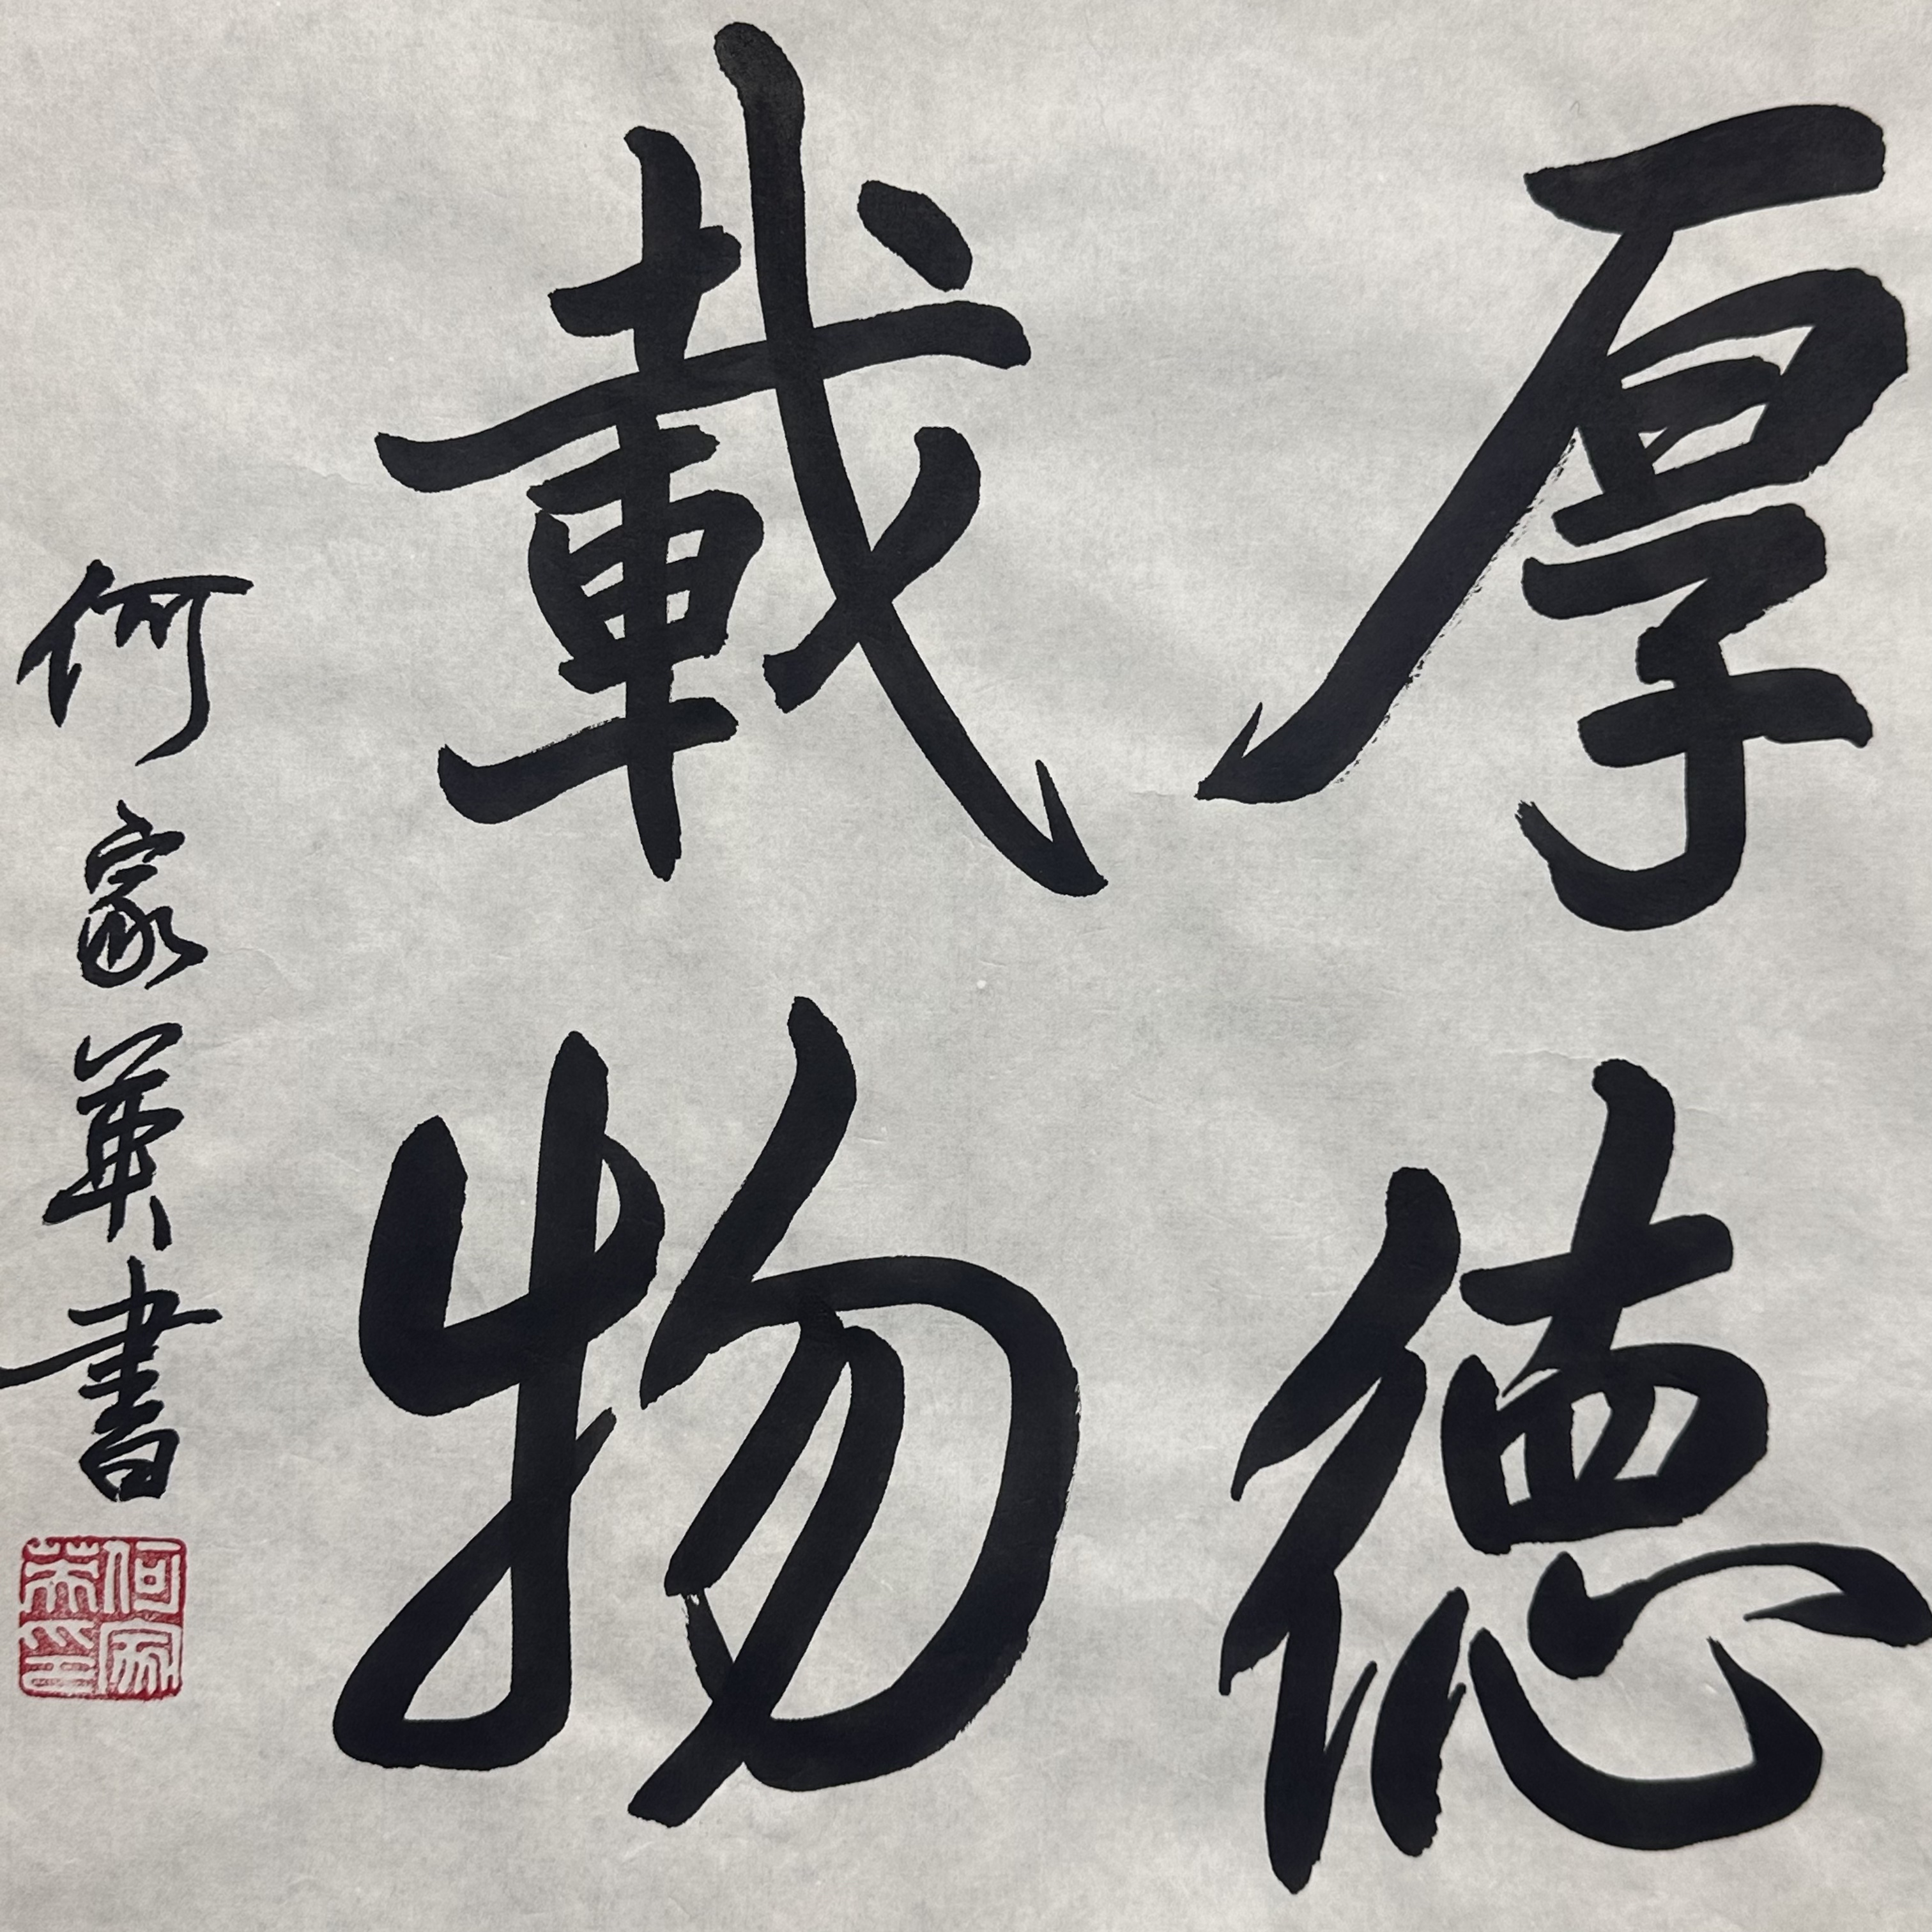 厚德
載物
何家英書
何家英印